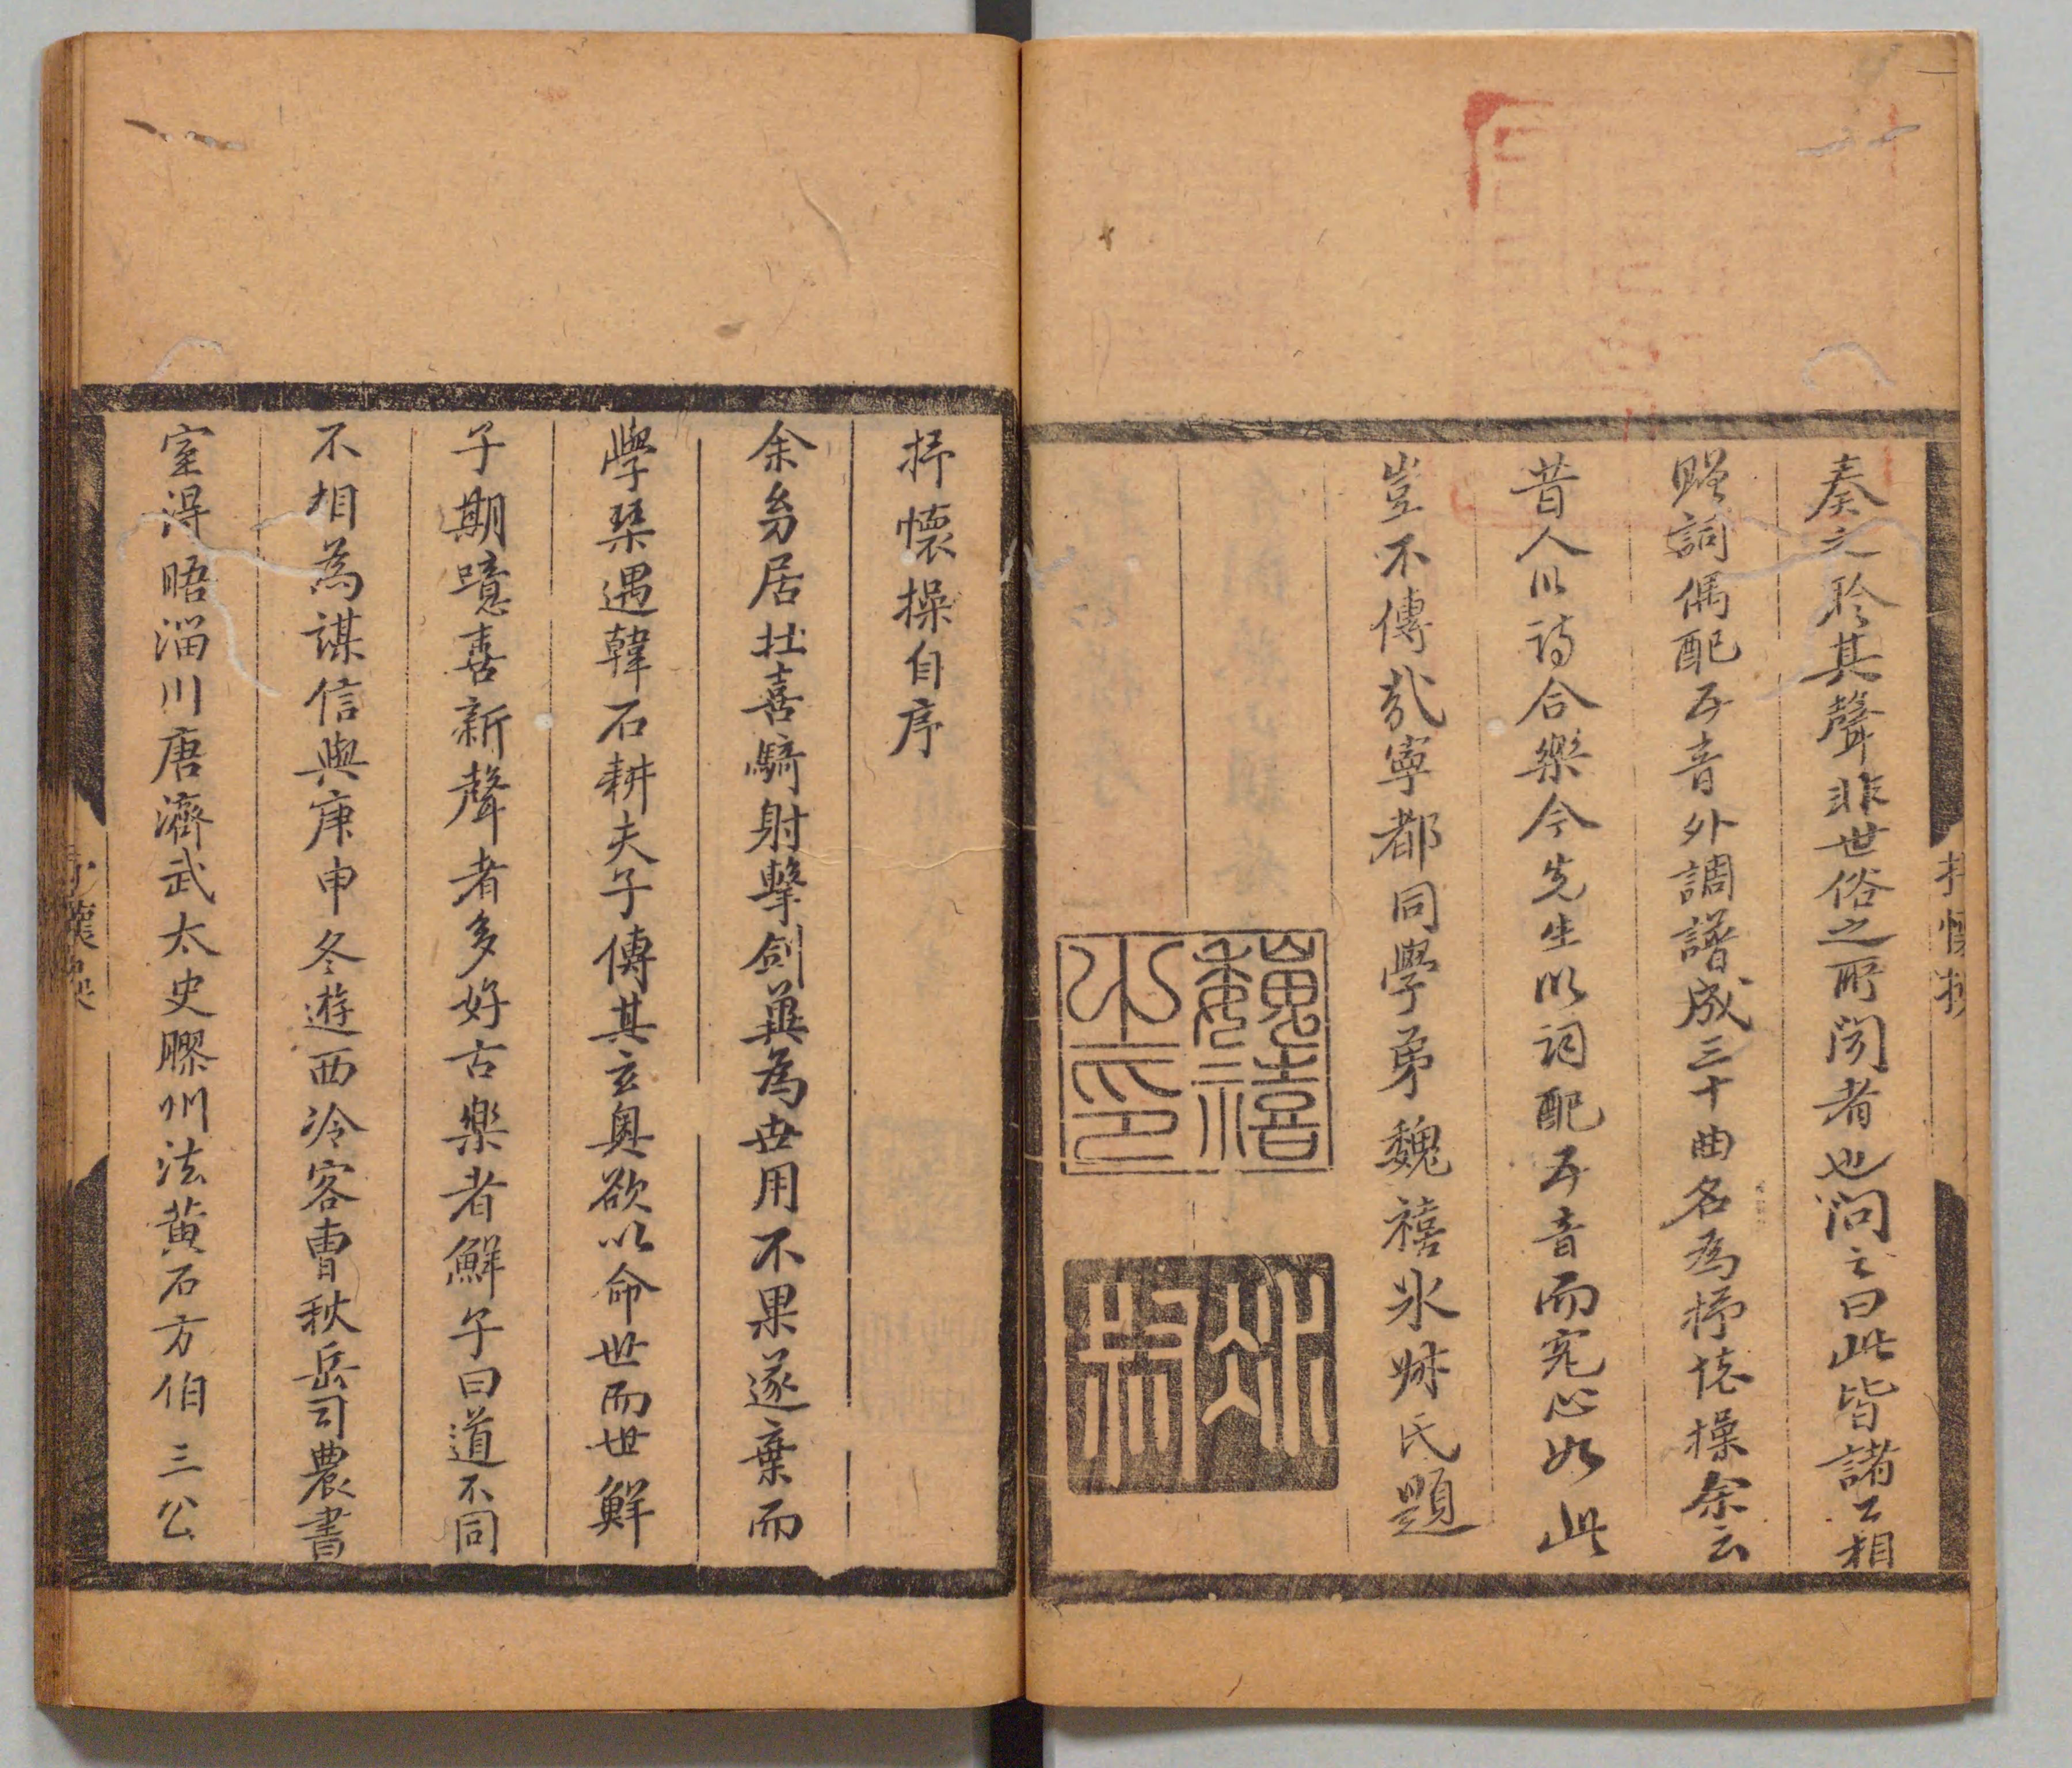 奏之聆其聲非世俗之所闻者也问之曰此皆諸公相
贈詞偶配五音外調譜成三十曲名為抒懷操余云
昔人以詩合樂今先生以词配五音而究心如此
豈不傳哉寧都同學弟魏禧冰叔氏題
魏禧
之印
冰
叔
抒懷操自序
余㓜居壮喜騎射擊劍冀為世用不果遂棄而
學琹遇韓石耕夫子傳其玄奥欲以命世而世鮮
子期噫喜新聲者多好古樂者鮮子曰道不同
不相為謀信與庚申冬遊西冷客曹秋岳司農書
室淂晤淄川唐濟武太史膠州法黄石方伯三公
抒懷操